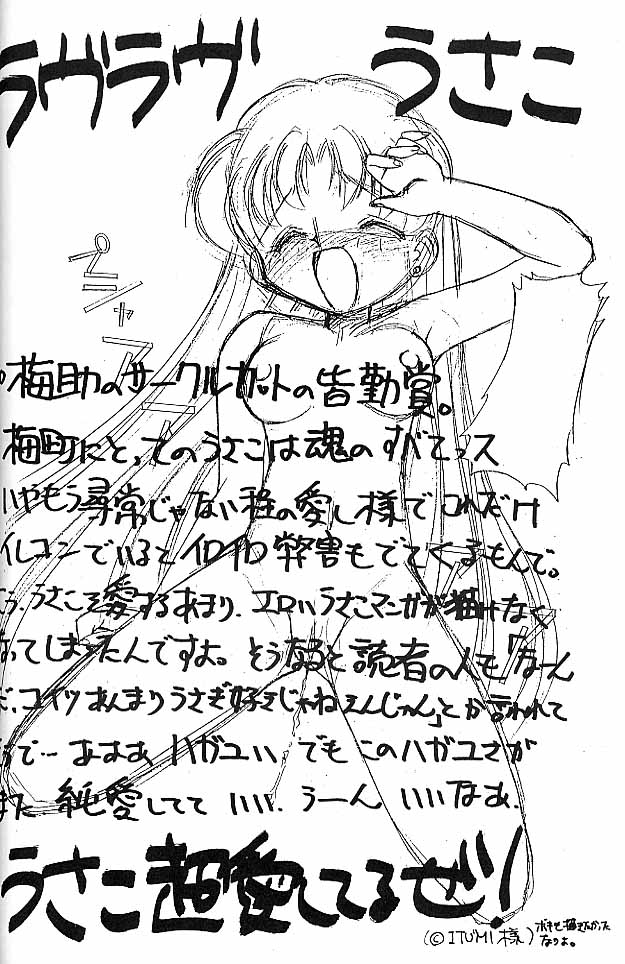 ラヴラヴ うさこ
プシャアー
梅助のサークルカットの皆勤賞。
梅町にとってのうさこは魂のすべてっス
いやもう尋常じゃない程の愛し様でこれだけ
イレコンでいるとイロイロ弊害もでてくるもんで。
うさこを愛するあまり、エロいうさこマンガが描けなく
なってしまったんですよ。そうなると読者の人も「なーん
だ、コイツあんまりうさぎ好きじゃねえんじゃん」とか言われて
で…あああ ハガユい でもこのハガユさが
また 純愛してて いい。うーん いいなあ。
うさこ超愛してるぜ!
(©ITUMI様)